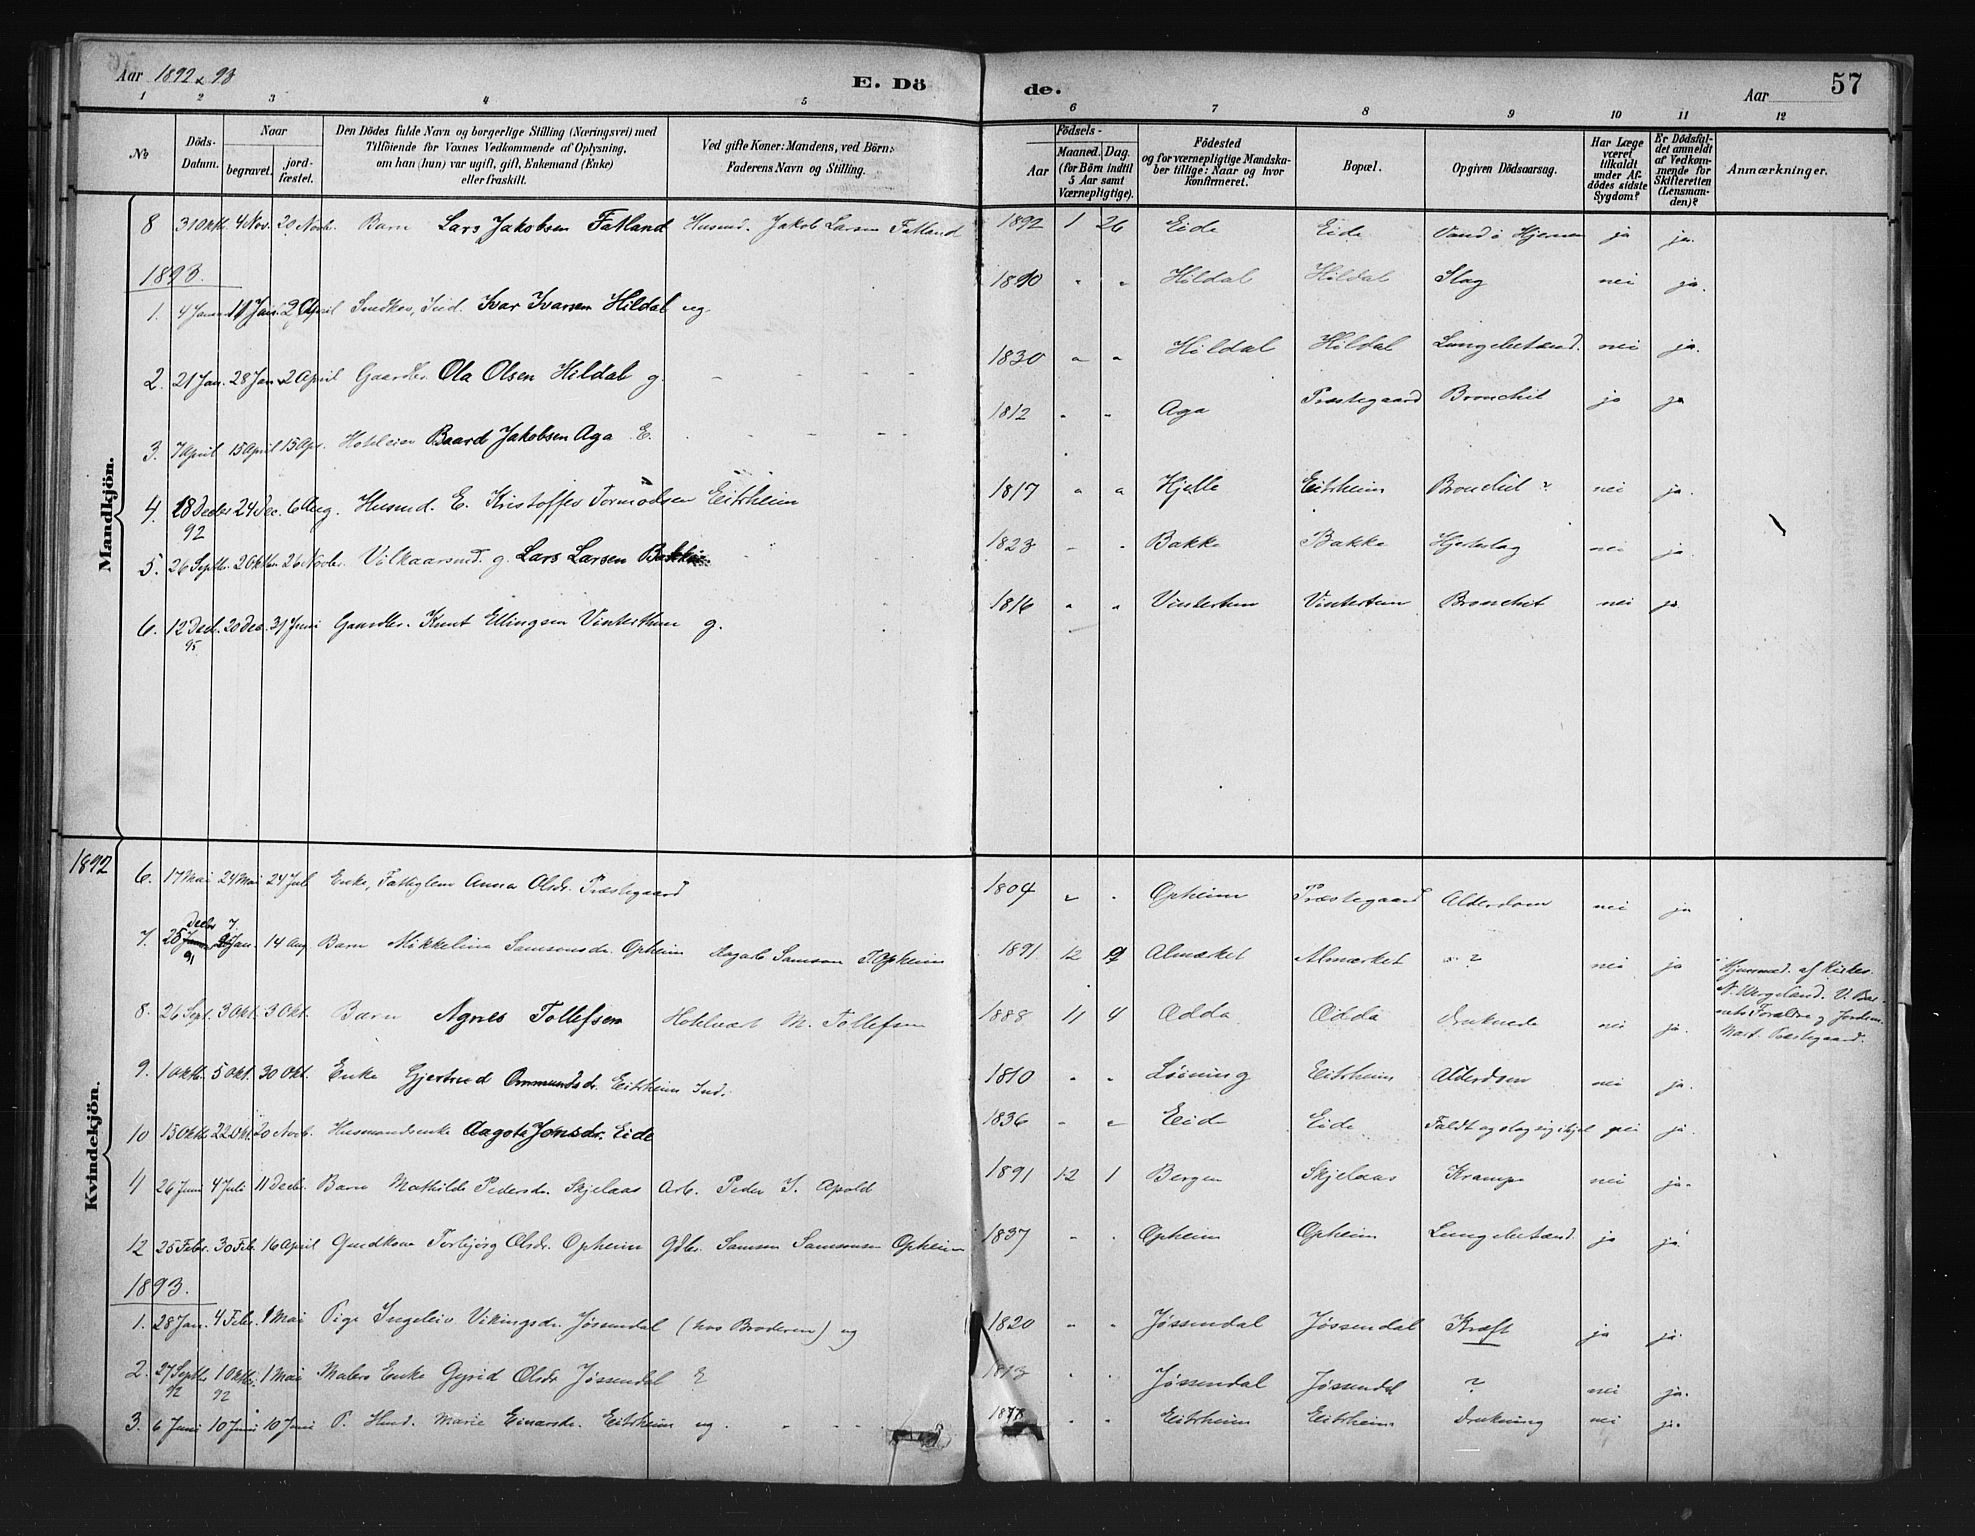 Aar 1892 & 93
E. Dö
de.
Aar
57
1 2 3 4 5 6 7 8 9 10 11 12
No
Döds-Datum.
Naar
begravet.
jordfæstet.
Den Dödes fulde Navn og borgerlige Stilling (Næringsvei) med
Tilföiende for Voxnes Vedkommende af Oplysning,
om han (hun) var ugift, gift, Enkemand (Enke)
eller fraskilt.
Ved gifte Koner: Mandens, ved Börn:
Faderens Navn og Stilling.
Födsels-
Aar
Maaned. Dag.
(for Börn indtil
5 Aar samt
Værnepligtige).
Födested
og for værnepligtige Mandskaber tillige: Naar og hvor
Konfirmeret.
Bopæl.
Opgiven Dödsaarsag.
Har Læge
været
tilkaldt
under Afdödes sidste
Sygdom?
Er Dödsfaldet anmeldt
af Vedkommende for
Skifteretten
(Lensmanden)?
Anmærkninger.
Mandkjön.
8 31 Okt. 4 Nov. 20 Novbr. Barn Lars Jakobsen Fatland Husmd. Jakob Larsen Fatland 1892 1 26 Eide Eide Vand i Hjernen ja ja.
1893.
1. 4 Janr 11 Jan. 2 April Ind. Ivar Ivarsen Hildal ug. 1890 " " Hildal Hildal Slag nei ja.
2. 21 Jan. 28 Jan 2 April Gaardbr. Ola Olsen Hildal g. 1830 " " Hildal Hildal Lungebetænd. nei ja.
3. 7 April 15 April 15 Apr. Hoteleier Baard Jakobsen Aga E. 1812 " " Aga Præstegaard Bronchit ja ja
4. 18 Decbr 92 24 Dec. 6 Aug. Husmd. E. Kristoffer Tormodsen Eitrheim 1817 " " Hjelle Eitrheim Bronchit ? nei ja.
5. 26 Septbr. 2 Oktbr. 26 Novbr. Vilkaarsmd. g. Lars Larsen Bakke 1823 " " Bakke Bakke Hjerteslag nei ja.
6. 12 Decl. 20 Dec. Gaardbr. Knut Ellingsen Vinterthun g. 1816 " " Vintertun Vintertun Bronchit nei ja.
Kvindekjön.
1892
6. 17 Mai 24 Mai 24 Juli Enke, Fattiglem Anna Olsdr. Præstegaard 1804 " " Opheim Præstegaard Alderdom nei ja
7. 28 Decbr 91 7. Jan. 14 Aug Barn Mikkelina Samsonsdr. Opheim Samson Opheim 1891 12 9 Almærket Almærket ? nei ja Hjemmed. af Kirkes. N. Wergeland. V. Barnets Forældre g Jordem. Mart. Præstegaard.
8. 26 Sept. 3 Okt. 3 Okt. Barn Agnes Tollefsen Hotelvært M. Tollefsen 1888 11 4 Odda Odda Druknede nei ja.
9. 1 Oktb. 5 Okt. 30 Okt. Enke Gjertrud Ommundsdr. Eitrheim Ind. 1810 " " Löining Eitrheim Alderdom nei ja.
10 15 Oktb. 22 Okt. 20 Novb. Husmandsenke Aagota Jonsdr. Eide 1836 " " Eide Eide Faldt og slog sig ihjel nei ja.
11 26 Juni 4 Juli 11 Decbr. Barn Mathilde Pedersdr. Skjelaas Arb. Peder J. Apold 1891 12 1 Bergen Skjelaas Krampe nei ja.
12 25 Febr. 30 Feb. 16 April Gmdkone Torbjörg Olsdr. Opheim Gdbr. Samson Samsonsen Opheim 1837 " " Opheim Opheim Lungebetænd. ja ja
1893.
1. 28 Jan. 4 Febr. 1 Mai Pige Ingeleiv Vikingsdr. Jøssendal (hos Broderen) ug 1820 " " Jøssendal Jøssendal Kræft ja ja.
2. 27 Septb. 92 1 Oktbr. 92 1 Mai Malers Enke Gyrid Olsdr. Jøssendal E 1813 " " Jøssendal Jøssendal ? nei ja.
3. 6 Juni 10 Juni 10 Juni P. Husd. Marie Einarsdr. Eitrheim ug. " " Eitrheim Eitrheim Drukning nei ja.